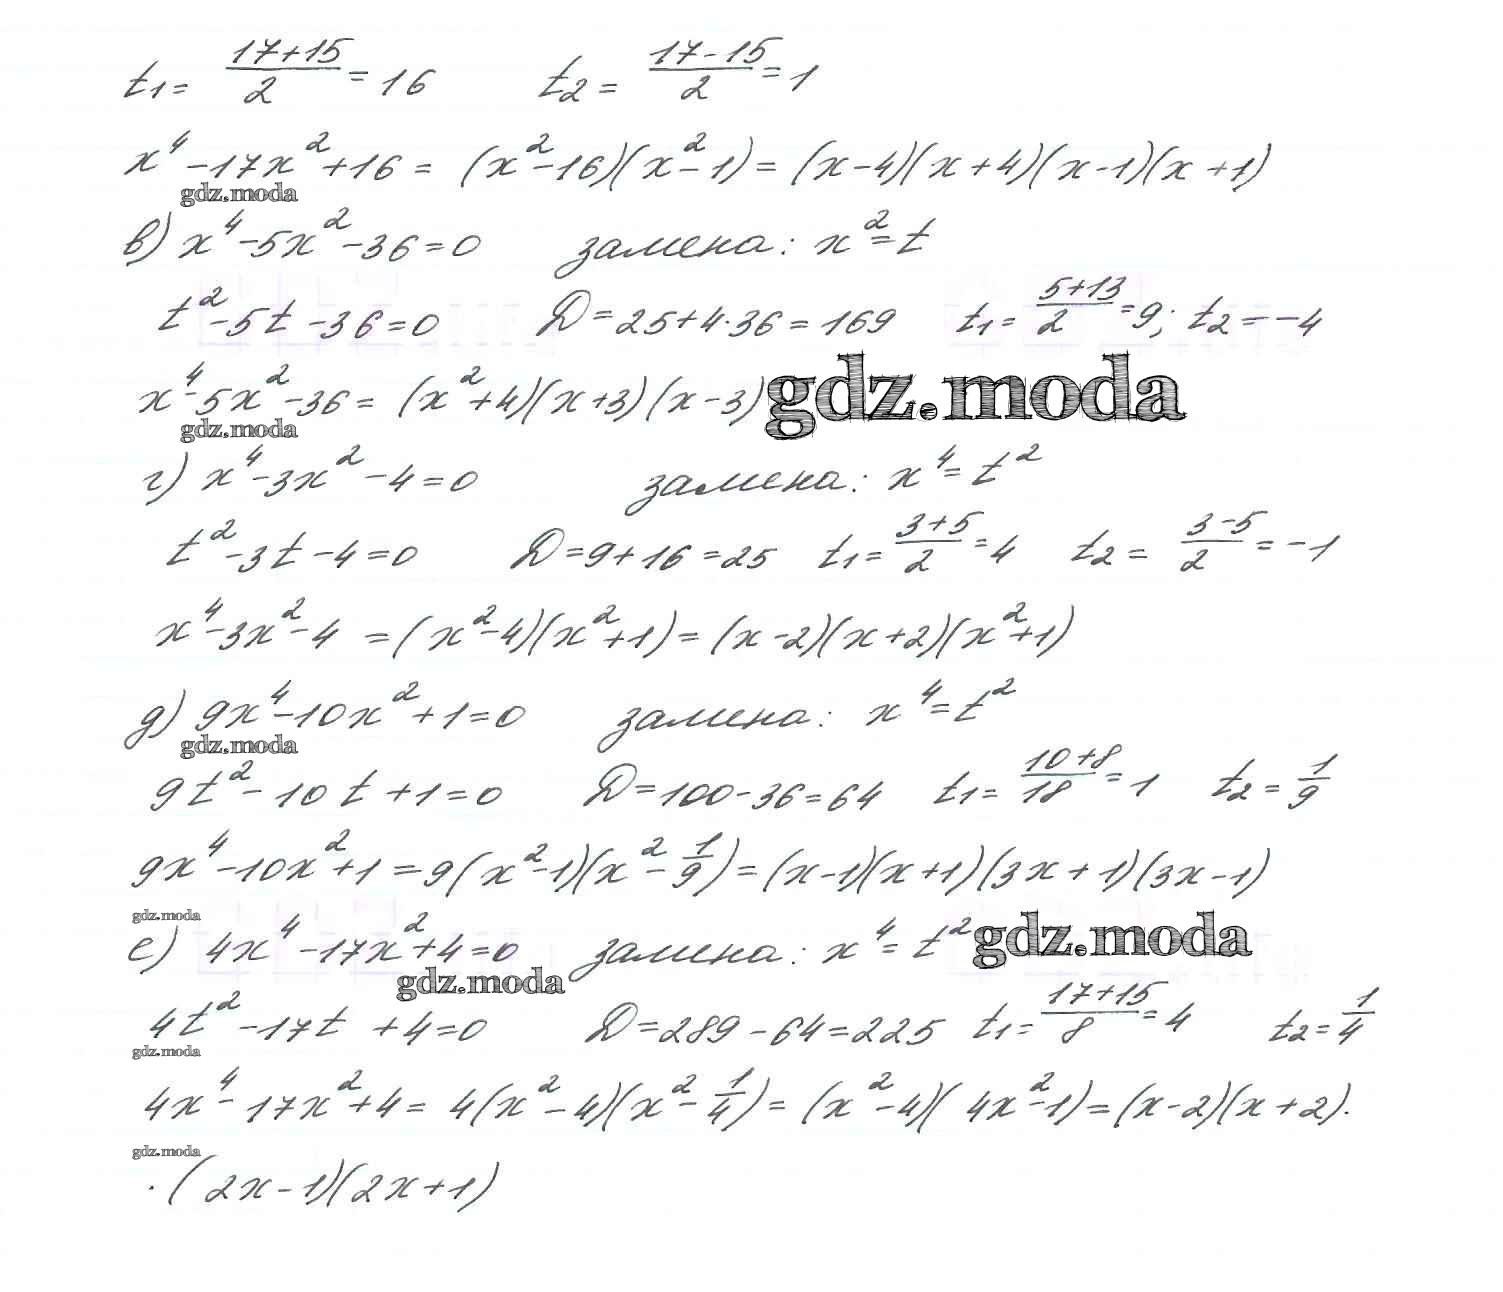 t₁ = (17+15)/2 = 16 t₂ = (17-15)/2 = 1
x⁴-17x²+16 = (x²-16)(x²-1) = (x-4)(x+4)(x-1)(x+1)
gdz.moda
в) x⁴-5x²-36=0 замена: x²=t
t²-5t-36=0 D=25+4·36=169 t₁=(5+13)/2=9; t₂=-4
x⁴-5x²-36 = (x²+4)(x+3)(x-3) gdz.moda
gdz.moda
г) x⁴-3x²-4=0 замена: x⁴=t²
t²-3t-4=0 D=9+16=25 t₁=(3+5)/2=4 t₂=(3-5)/2=-1
x⁴-3x²-4 =(x²-4)(x²+1)=(x-2)(x+2)(x²+1)
д) 9x⁴-10x²+1=0 замена: x⁴=t²
gdz.moda
9t²-10t+1=0 D=100-36=64 t₁=(10+8)/18=1 t₂=1/9
9x⁴-10x²+1=9(x²-1)(x²-1/9)=(x-1)(x+1)(3x+1)(3x-1)
gdz.moda
е) 4x⁴-17x²+4=0 замена: x⁴=t² gdz.moda
gdz.moda
4t²-17t+4=0 D=289-64=225 t₁=(17+15)/8=4 t₂=1/4
gdz.moda
4x⁴-17x²+4= 4(x²-4)(x²-1/4)=(x²-4)(4x²-1)=(x-2)(x+2)·
gdz.moda
·(2x-1)(2x+1)